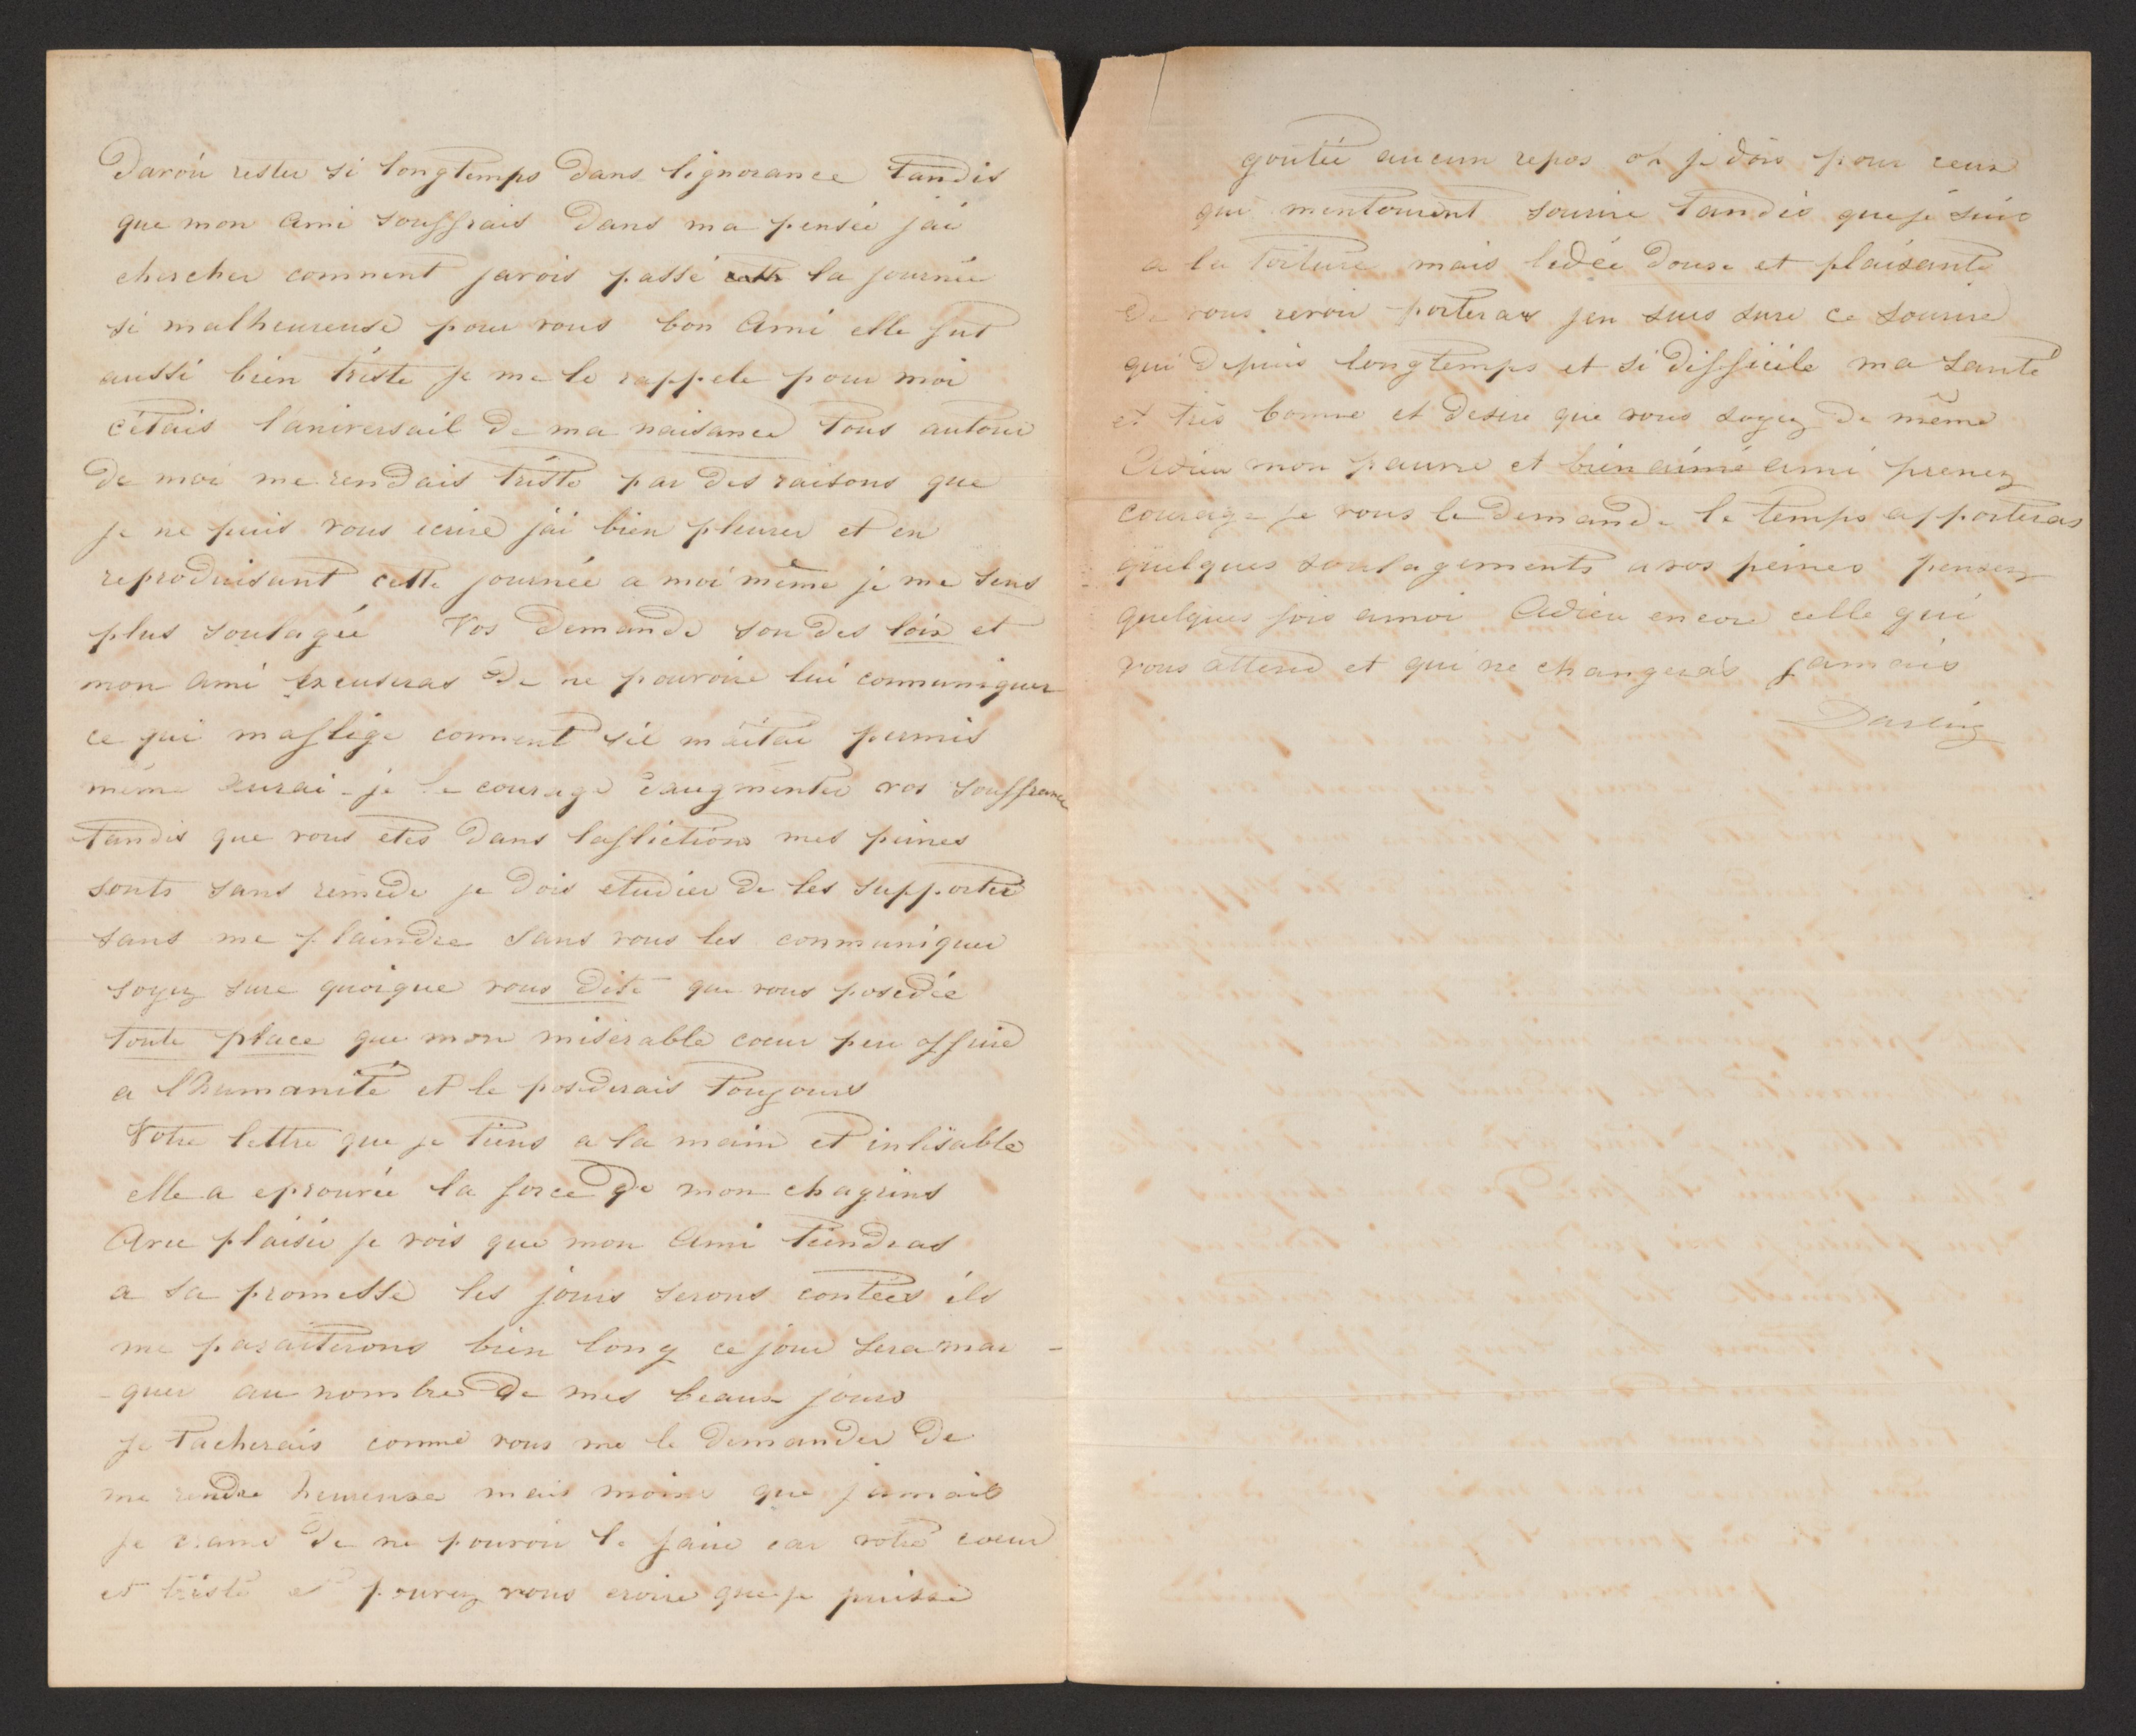 Davoir rester si longtemps Dans lignorance Tandis
que mon Ami souffrais Dans ma pensée jai
chercher comment javois passé la journée
si malheureuse pour vous bon Ami elle fut
aussi bien triste je me le rappele pour moi
cétais l'aniversail de ma naisance Tous autour
De moi me rendais triste par des raisons que
je ne puis vous ecrire jai bien pleurer et en
reproduisant cette journée a moi même je me sens
plus soulagée Vos Demande son des loix et
mon ami excuseras De ne pouvoire lui communiquer
ce qui maflige comment sil mêtai permis
même aurai-je le courage d'augmenter vos souffrance
Tandis que vous etes Dans lafliction mes peines
sonts sans remede je Dois etudier De les supporter
sans me plaindre sans vous les communiquer
soyez sure quoique vous Dite que vous posedée
toute place que mon misérable coeur peu offrire
a l'humanité et le posederais Toujours
Votre lettre que je Tiens a la main et inlisable
elle a eprouvée la force De mon chagrins
Avec plaisir je vois que mon Ami Tiendras
a sa promesse les jours serons contées ils
me paraiterons bien long ce jour sera mar-
-quer au nombre De mes beaux jours
je Tacherais comme vous me le Demander De
me rendre heureuse mais moins que jamais
je crains De ne pouvoir le faire car votre coeur
et triste et pouvez vous croire que je puisse
goutée aucun repos oh je dois pour ceux
qui mentourent sourire Tandis que je suis
a la Torture mais lidée Douse et plaisante
De vous revoir porteras jen suis sure ce sourire
qui Depuis longtemps et si Difficile ma santé
et très bonne et Desire que vous soyez De même
Adieu mon pauvre et bien aimé ami prenez
courage je vous le Demande le temps apporteras
quelques soulagements a vos peines pensez
quelques fois amoi Adieu encore celle qui
vous attend et qui ne changeras jamais
Darling